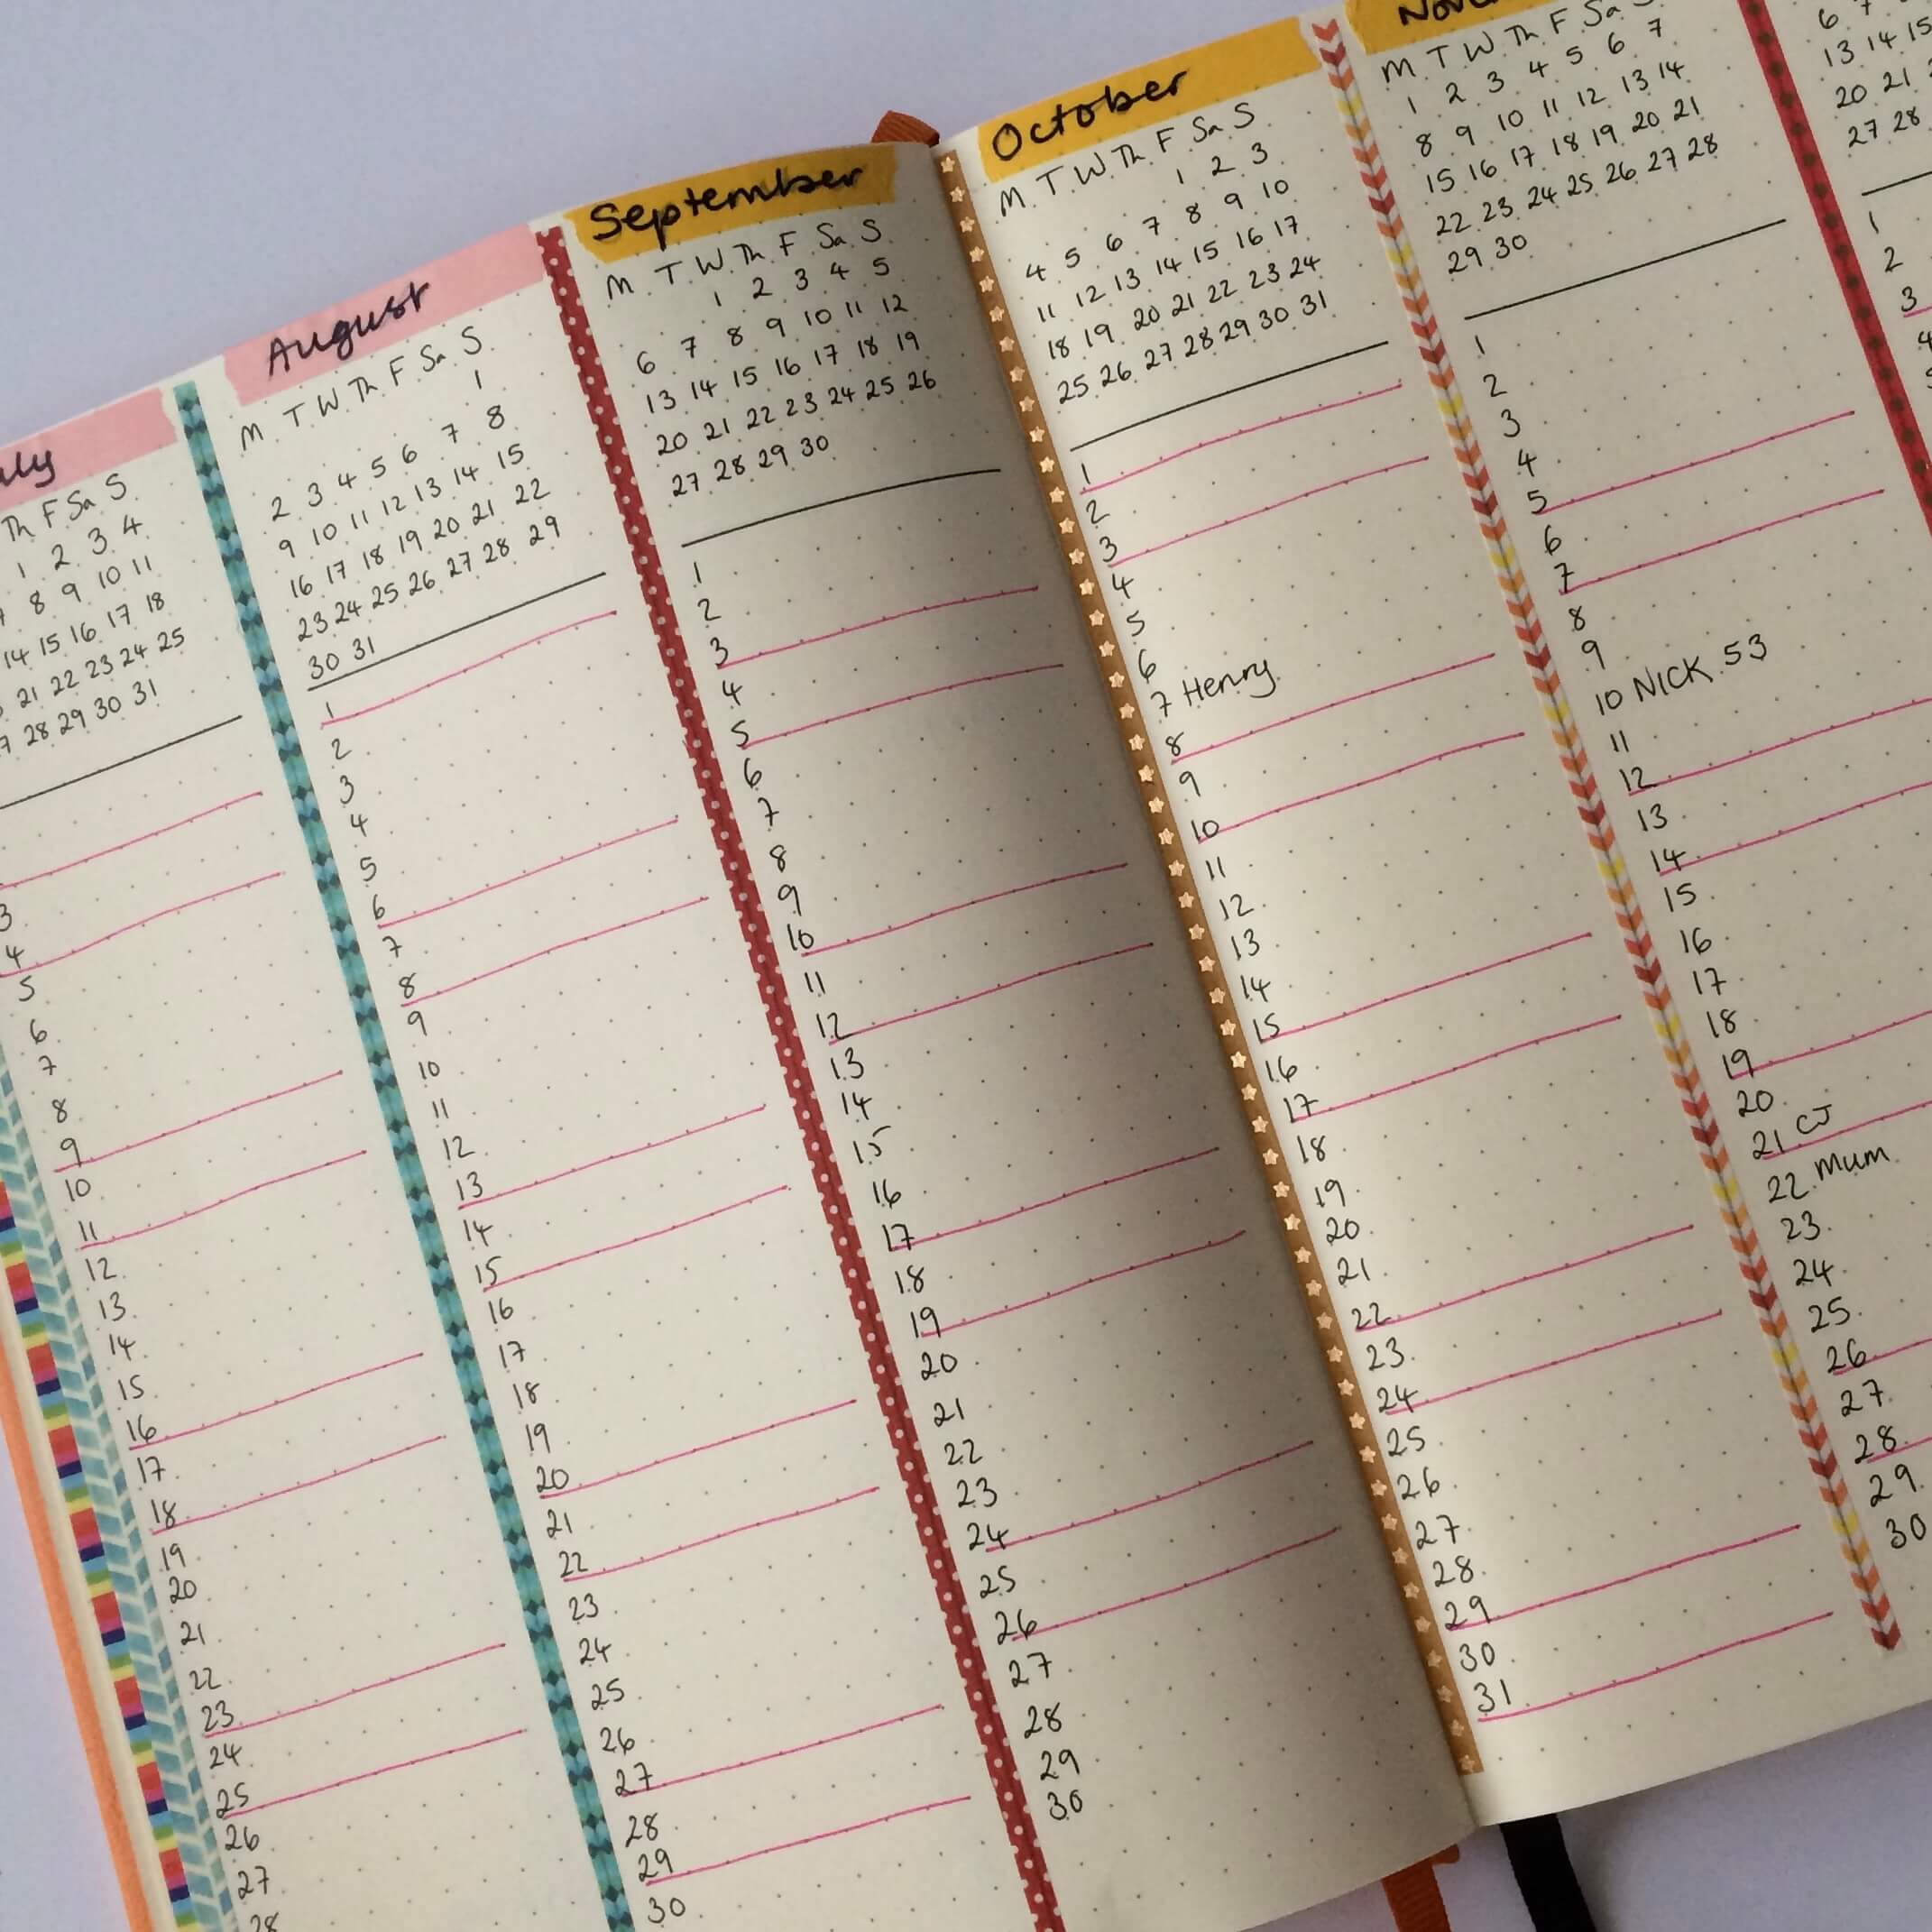 uly
Th F Sa S
1 2 3 4
8 9 10 11
14 15 16 17 18
21 22 23 24 25
28 29 30 31
3
4
5
6
7
8
9
10
11
12
13
14
15
16
17
18
19
20
21
22
23
24
25
26
27
28
August
M T W Th F Sa S
1
2 3 4 5 6 7 8
9 10 11 12 13 14 15
16 17 18 19 20 21 22
23 24 25 26 27 28 29
30 31
1
2
3
4
5
6
7
8
9
10
11
12
13
14
15
16
17
18
19
20
21
22
23
24
25
26
27
28
29
30
September
M T W Th F Sa S
1 2 3 4 5
6 7 8 9 10 11 12
13 14 15 16 17 18 19
20 21 22 23 24 25 26
27 28 29 30
1
2
3
4
5
6
7
8
9
10
11
12
13
14
15
16
17
18
19
20
21
22
23
24
25
26
27
28
29
30
October
M T W Th F Sa S
1 2 3
4 5 6 7 8 9 10
11 12 13 14 15 16 17
18 19 20 21 22 23 24
25 26 27 28 29 30 31
1
2
3
4
5
6
7 Henry
8
9
10
11
12
13
14
15
16
17
18
19
20
21
22
23
24
25
26
27
28
29
30
31
Nov
M T W Th F Sa S
1 2 3 4 5 6 7
8 9 10 11 12 13 14
15 16 17 18 19 20 21
22 23 24 25 26 27 28
29 30
1
2
3
4
5
6
7
8
9
10 NICK 53
11
12
13
14
15
16
17
18
19
20
21 CJ
22 mum
23
24
25
26
27
28
29
30
6 7
13 14 15
20 21
27 28
1
2
3
4